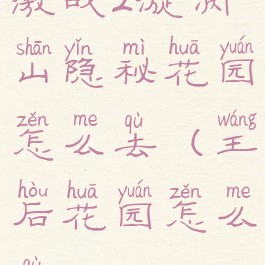 shān yǐn mì huā yuán
山隐秘花园
zěn me qù wáng
怎么去（王
hòu huā yuán zěn me
后花园怎么
qù